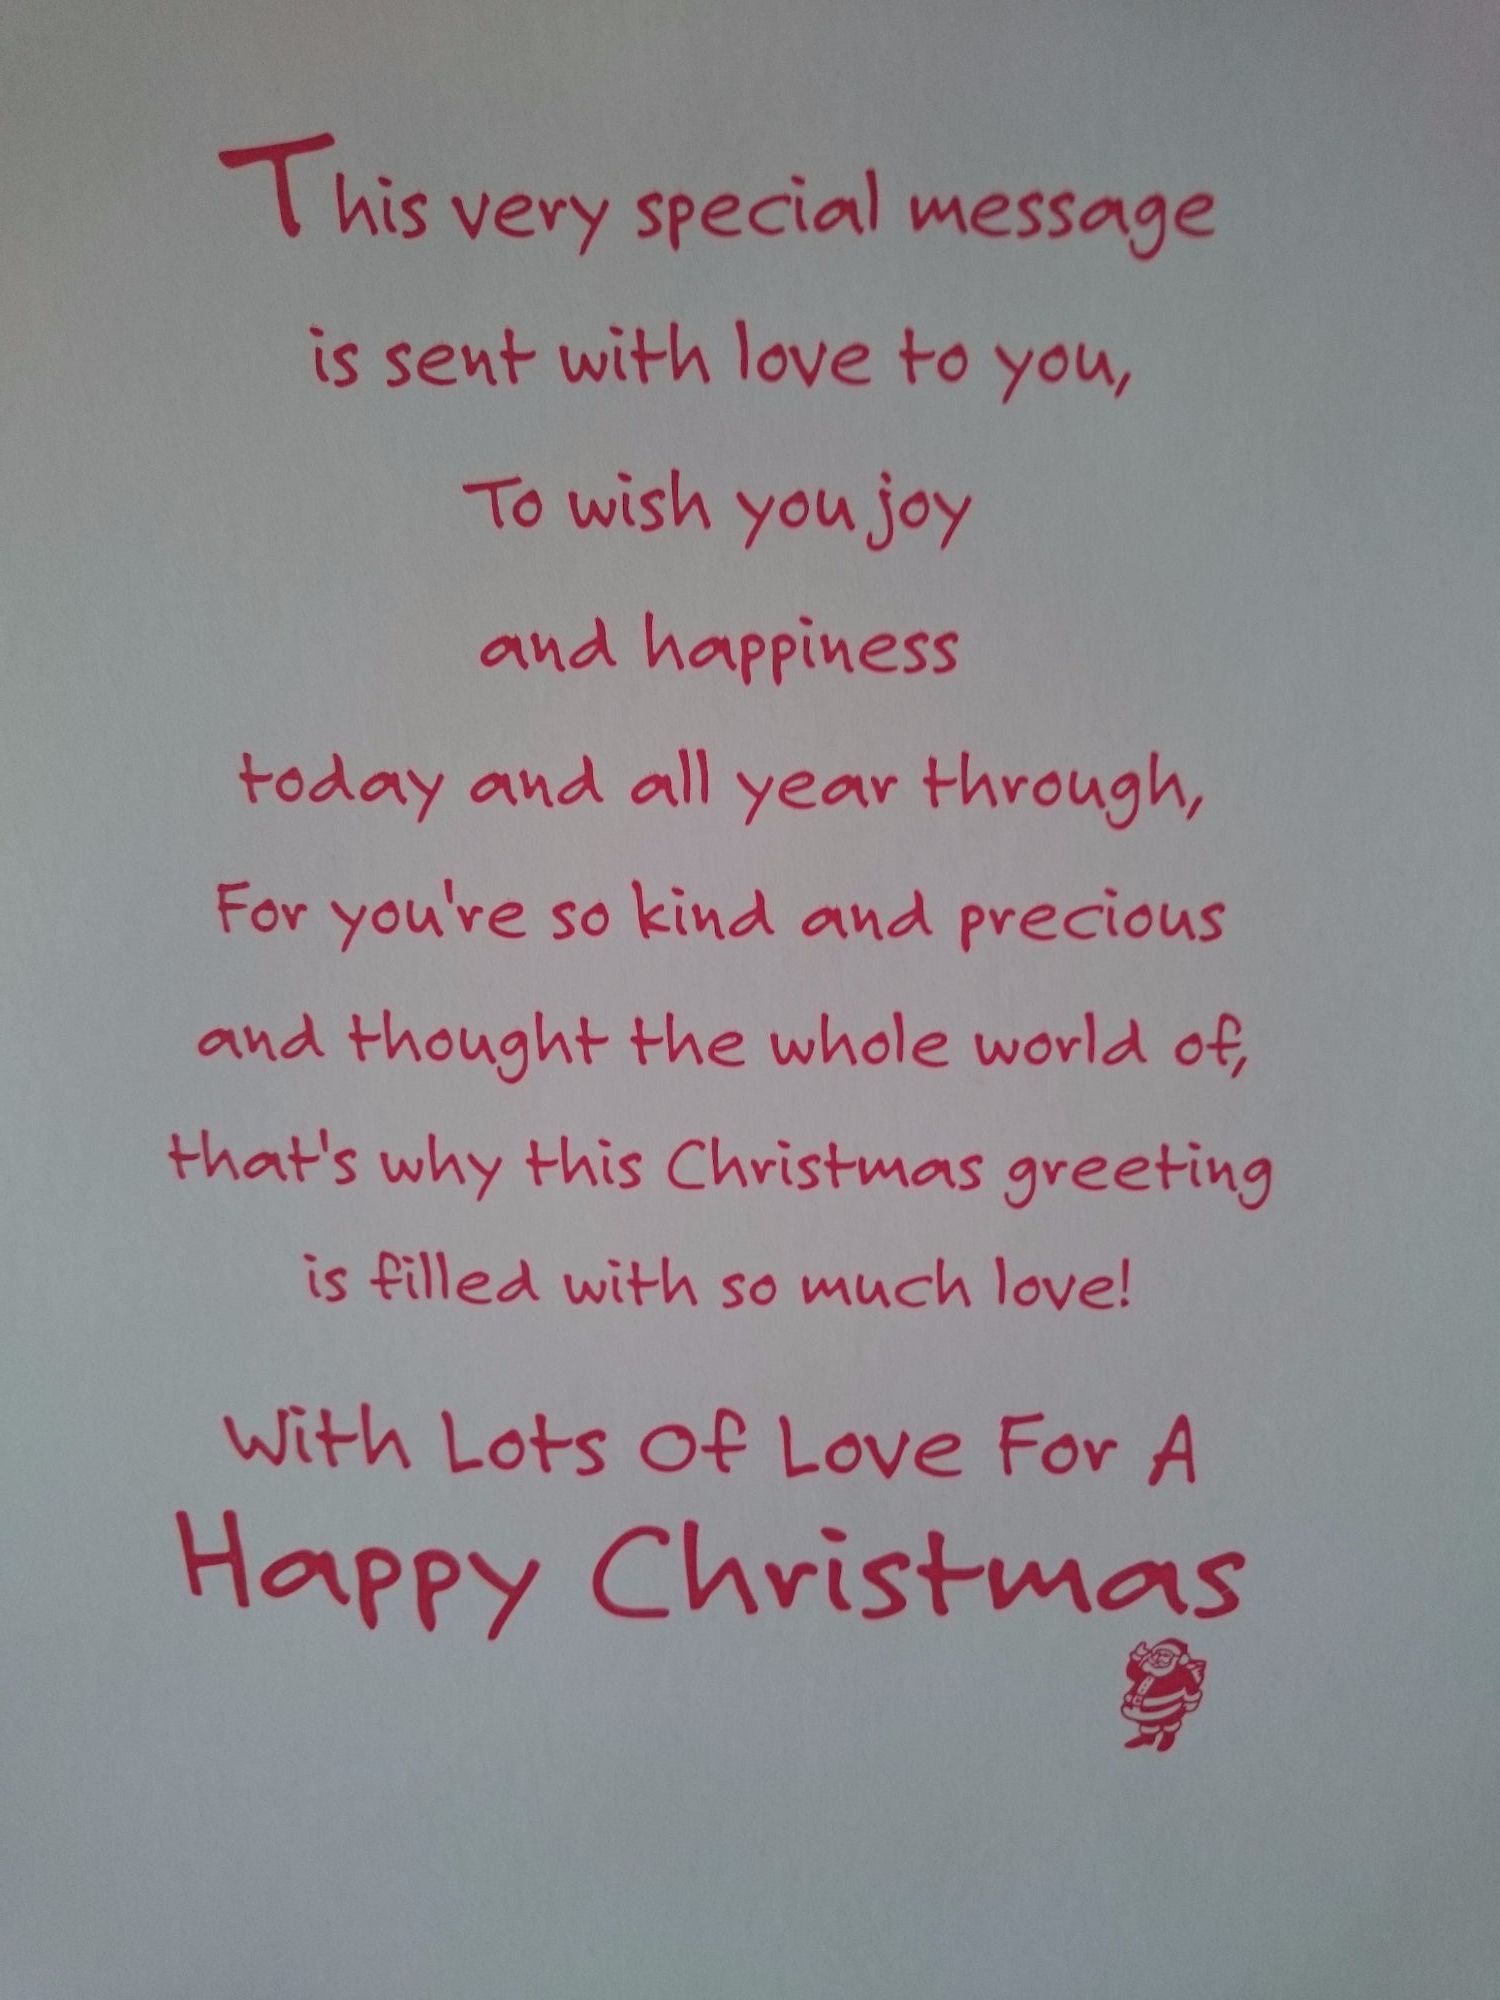 This very special message
is sent with love to you,
To wish you joy
and happiness
today and all year through,
For you're so kind and precious
and thought the whole world of,
that's why this Christmas greeting
is filled with so much love!
With Lots Of Love For A
Happy Christmas